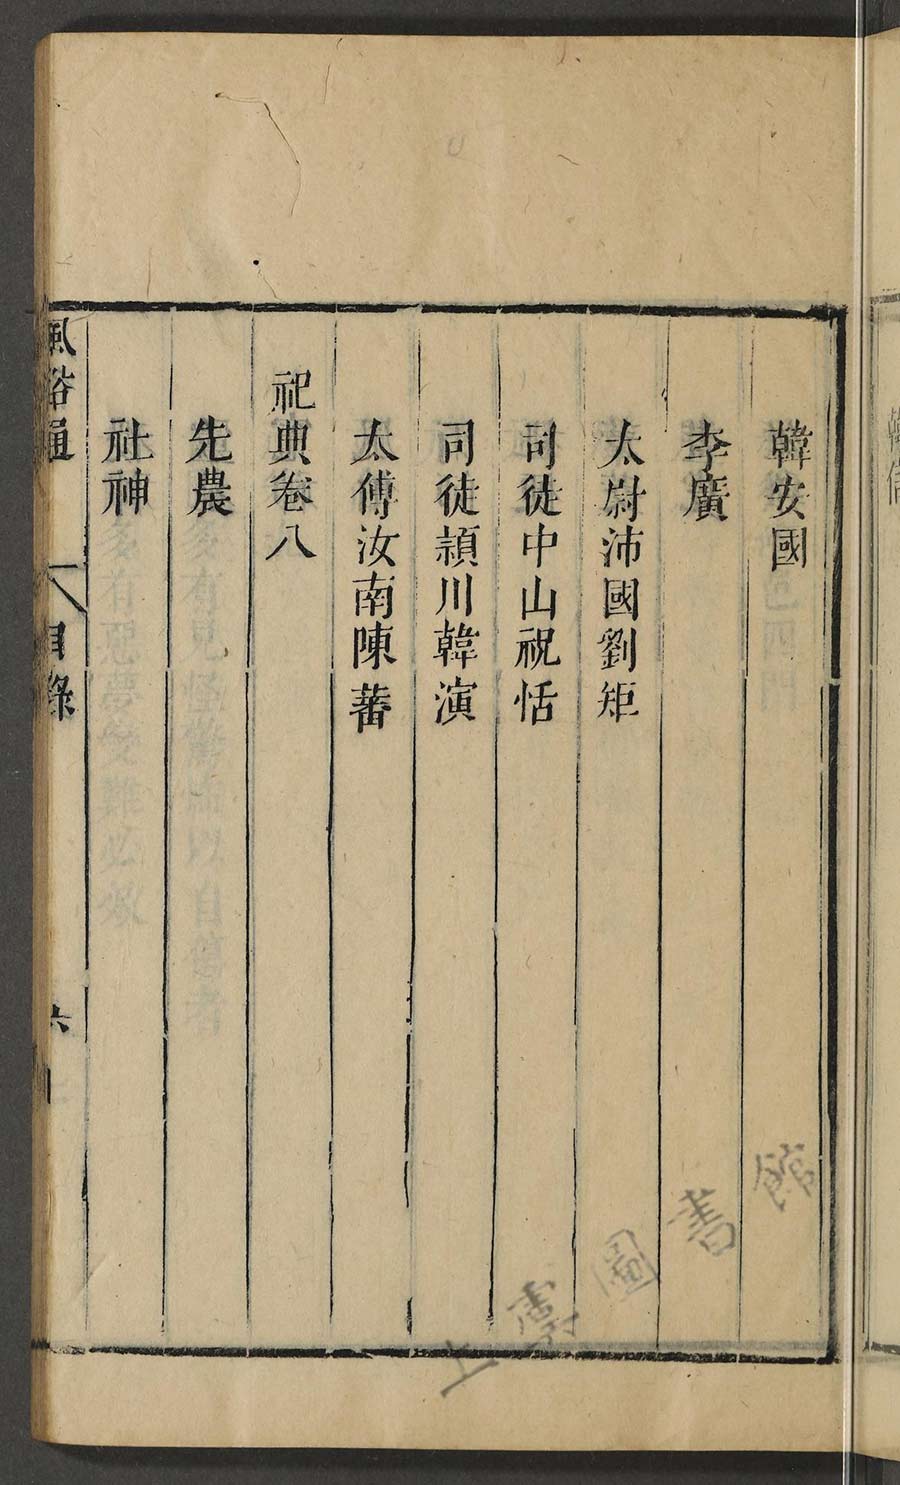 韓安國
李廣
太尉沛國劉矩
司徒中山祝恬
司徒潁川韓演
太傅汝南陳蕃
祀典卷八
先農
社神
風俗通
目錄
六
圖書館